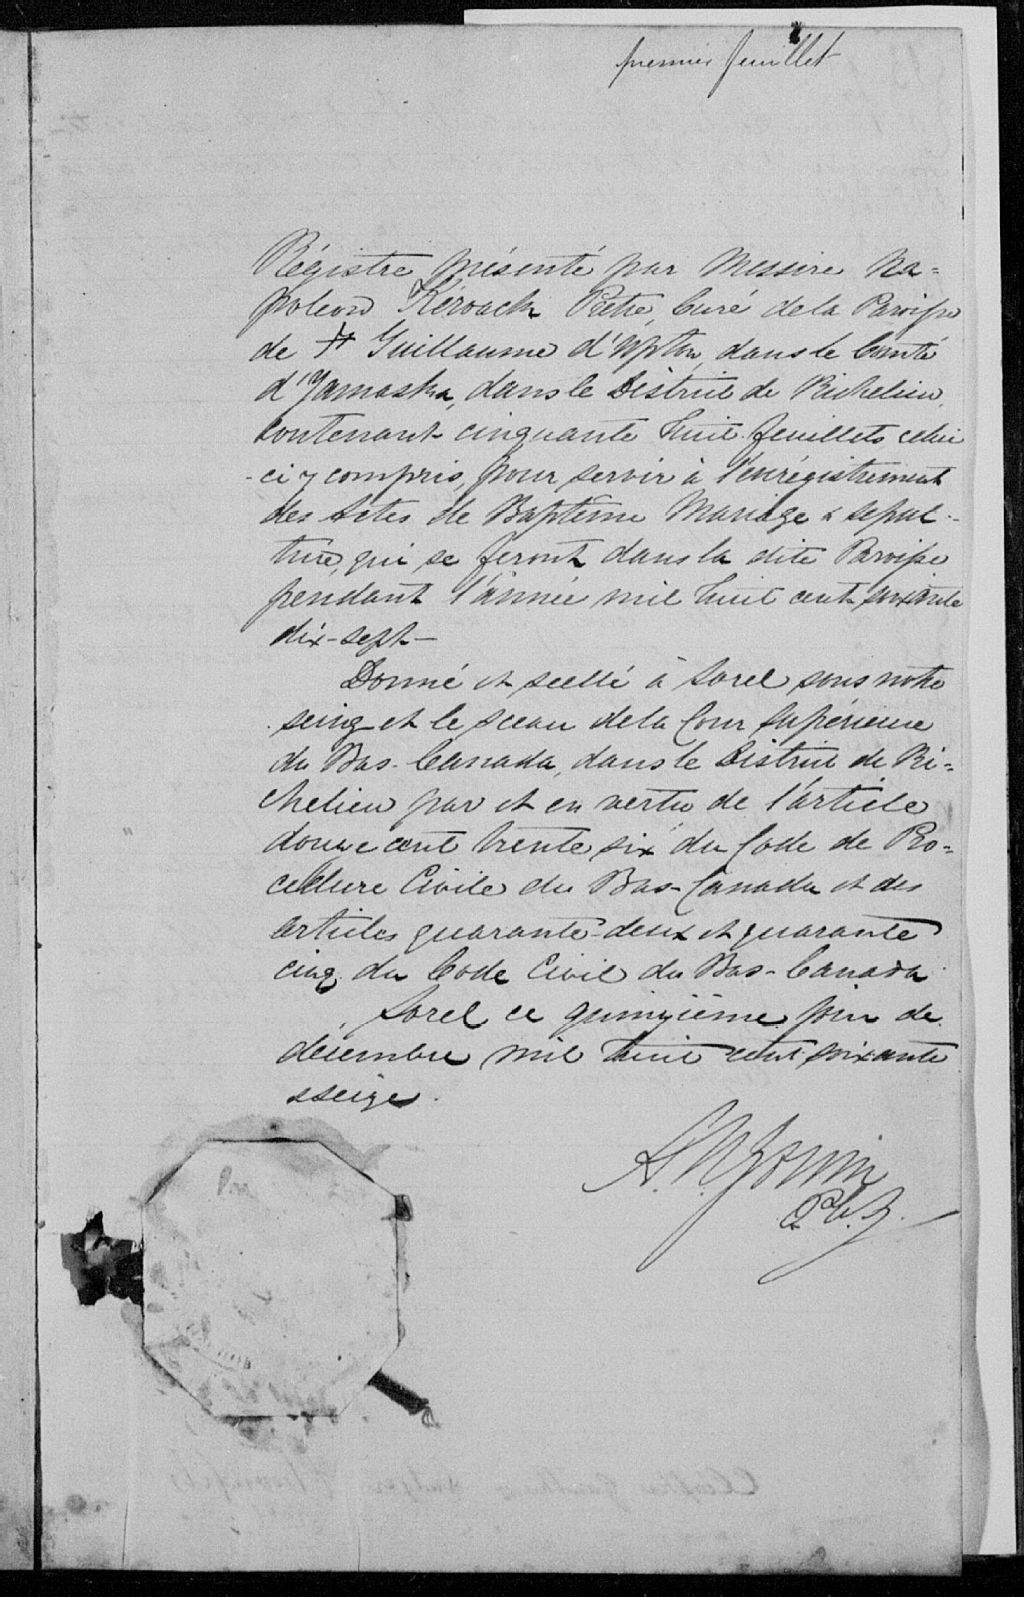 premier feuillet
Régistre présenté par Messire Na=
poleon Kéroack Prêtre, Curé de la Paroisse
de St Guillaume d'Upton, dans le Comté
d'Yamaska, dans le District de Richelieu,
contenant cinquante huit feuillets celui
-ci y compris pour servir à l'enrégistrement
des Actes de Baptême Mariage & sepul-
ture, qui se feront dans la dite Paroisse
pendant l'année mil huit cent soixante
dix-sept—
Donné et scellé à Sorel sous notre
seing et le sceau de la Cour Supérieure
du Bas-Canada, dans le District de Ri=
chelieu par et en vertu de l'article
douze cent trente six du Code de Pro=
cédure Civile du Bas-Canada et des
articles quarante-deux et quarante
cinq du Code Civil du Bas-Canada
Sorel ce quinzième jour de
décembre mil huit cent soixante
& seize.
A. N. Gouin
P. C. S.